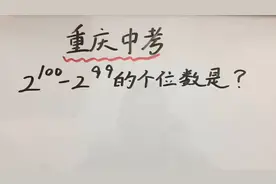 重庆中考
2¹⁰⁰-2⁹⁹的个位数是?